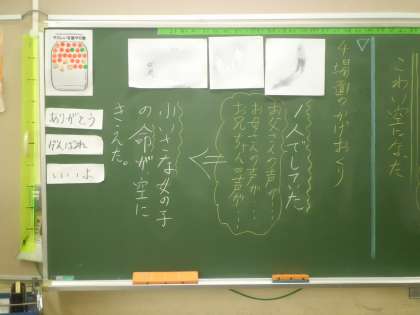 こわい空になった
4場面のかげおくり
1人でしていた。
お父さんの声が…
お母さんの声が…
お兄ちゃんの声が…
小いさな女の子
の命が、空に
きえた。
ありがとう
がんばれ
いいよ